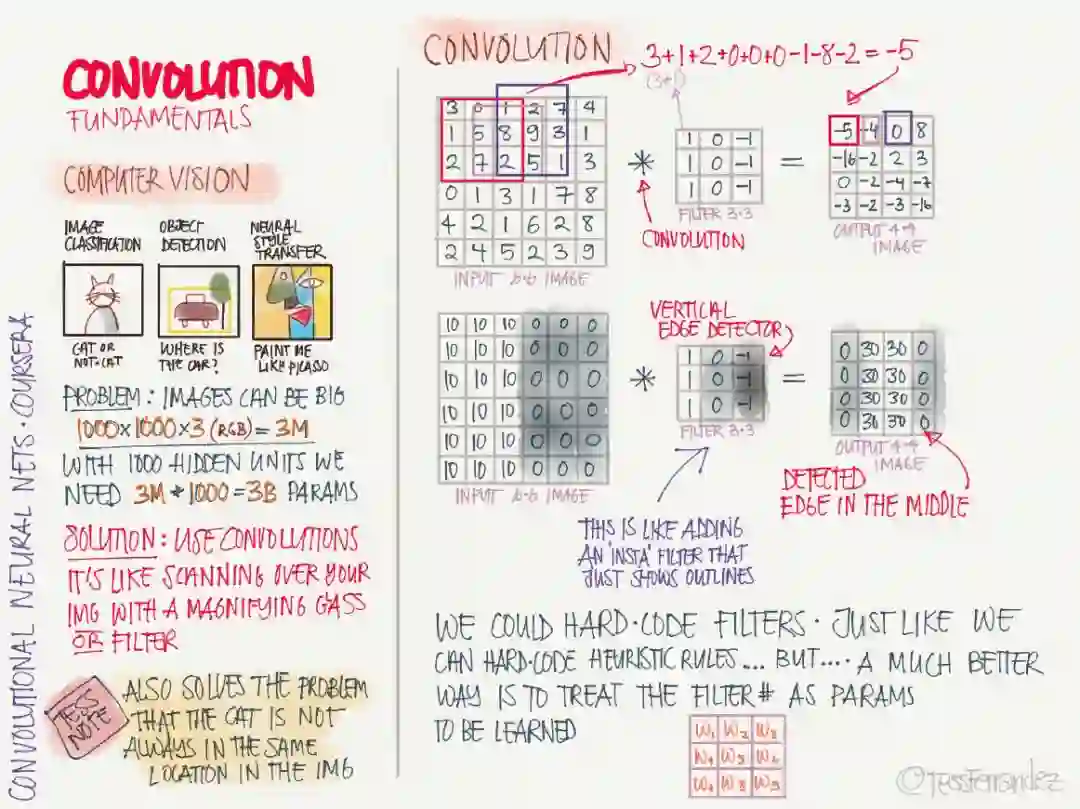 CONVOLUTIONAL NEURAL NETS · COURSERA
CONVOLUTION
FUNDAMENTALS
COMPUTER VISION
IMAGE
CLASSIFICATION
CAT OR
NOT-CAT
OBJECT
DETECTION
WHERE IS
THE CAR?
NEURAL
STYLE
TRANSFER
PAINT ME
LIKE PICASSO
PROBLEM: IMAGES CAN BE BIG
1000×1000×3 (RGB) = 3M
WITH 1000 HIDDEN UNITS WE
NEED 3M * 1000 = 3B PARAMS
SOLUTION: USE CONVOLUTIONS
IT'S LIKE SCANNING OVER YOUR
IMG WITH A MAGNIFYING GLASS
OR FILTER
TESS
NOTE
ALSO SOLVES THE PROBLEM
THAT THE CAT IS NOT
ALWAYS IN THE SAME
LOCATION IN THE IMG
CONVOLUTION
3+1+2+0+0+0-1-8-2=-5
(3*1)
3 0 1 2 7 4
1 5 8 9 3 1
2 7 2 5 1 3
0 1 3 1 7 8
4 2 1 6 2 8
2 4 5 2 3 9
INPUT 6·6 IMAGE
*
CONVOLUTION
1 0 -1
1 0 -1
1 0 -1
FILTER 3·3
=
-5 -4 0 8
-16 -2 2 3
0 -2 -4 -7
-3 -2 -3 -16
OUTPUT 4·4
IMAGE
10 10 10 0 0 0
10 10 10 0 0 0
10 10 10 0 0 0
10 10 10 0 0 0
10 10 10 0 0 0
10 10 10 0 0 0
INPUT 6·6 IMAGE
*
VERTICAL
EDGE DETECTOR
1 0 -1
1 0 -1
1 0 -1
FILTER 3·3
=
0 30 30 0
0 30 30 0
0 30 30 0
0 30 30 0
OUTPUT 4·4
IMAGE
DETECTED
EDGE IN THE MIDDLE
THIS IS LIKE ADDING
AN 'INSTA' FILTER THAT
JUST SHOWS OUTLINES
WE COULD HARD·CODE FILTERS · JUST LIKE WE
CAN HARD·CODE HEURISTIC RULES... BUT.... A MUCH BETTER
WAY IS TO TREAT THE FILTER # AS PARAMS
TO BE LEARNED
W1 W2 W3
W4 W5 W6
W7 W8 W9
©TessFerrandez